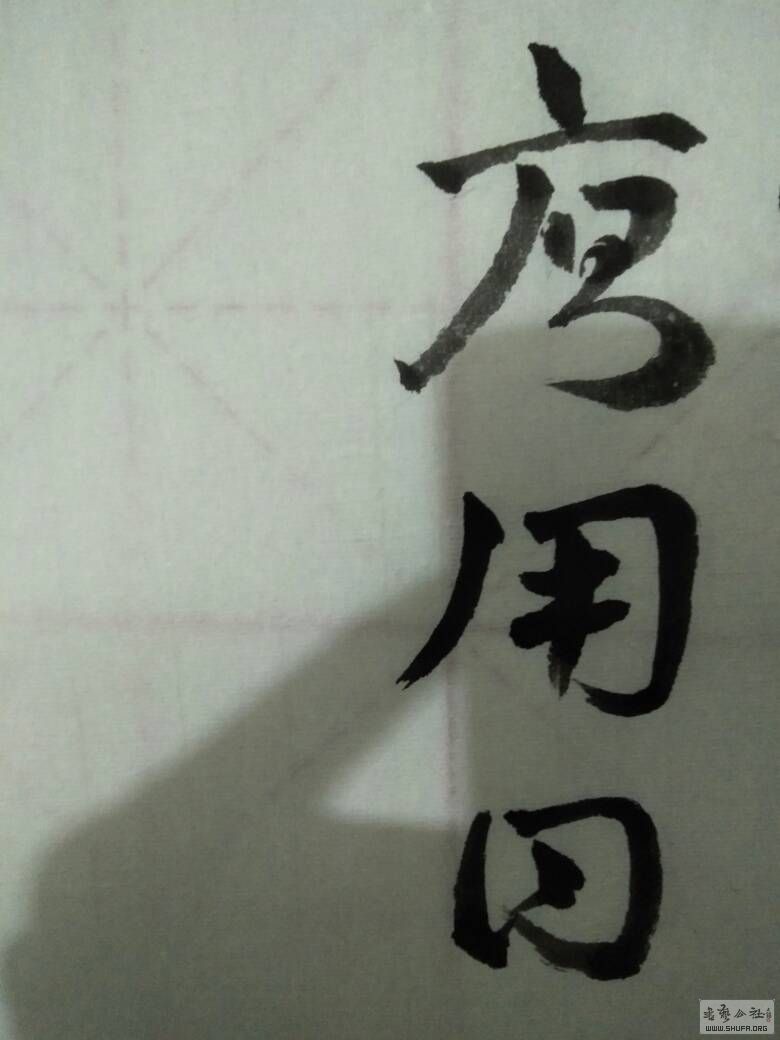 用
日
书艺公社
WWW.SHUFA.ORG